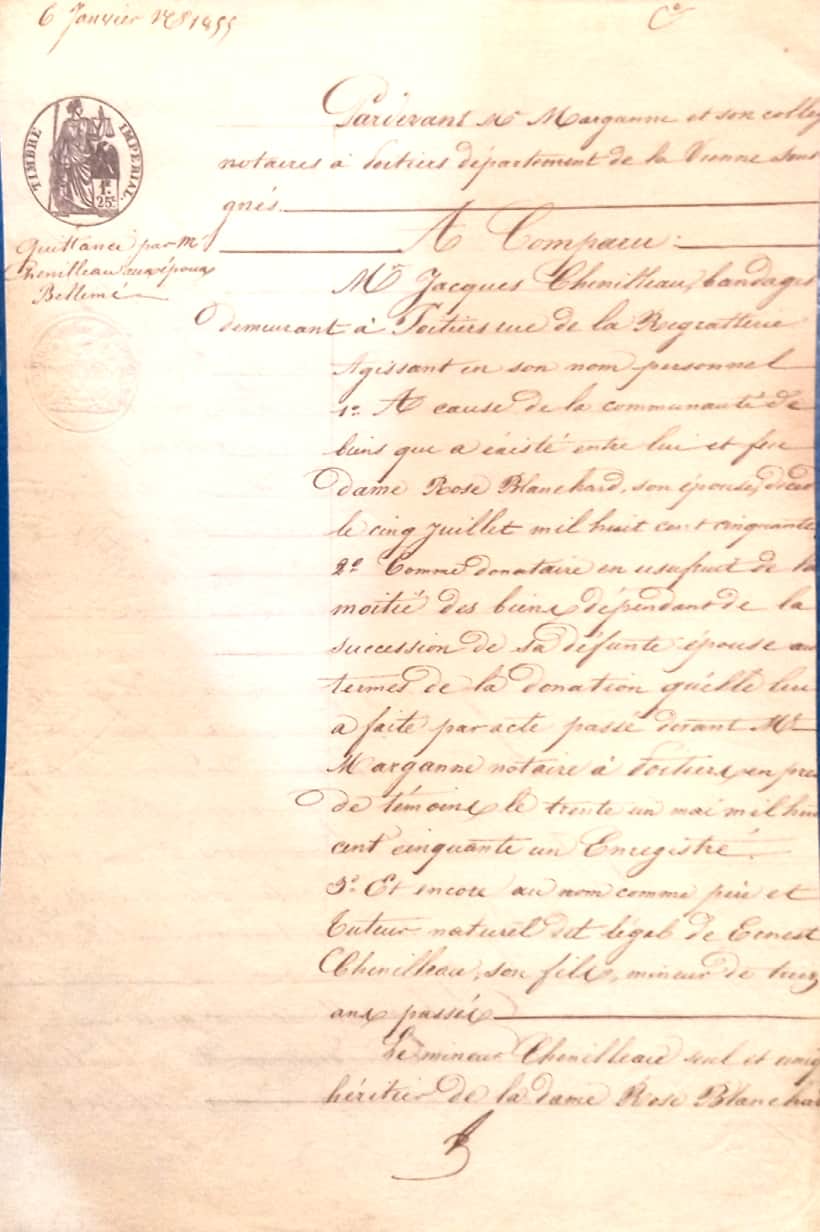 6 Janvier 1855
Co
TIMBRE IMPERIAL.
1f.
25c.
Quittance par Mr
Chenilleau aux époux
Bellemé
Pardevant Me Marganne et son colleg
notaires à Poitiers département de la Vienne sous
gnés
A Comparu :
Mr Jacques Chenilleau, bandagis
demeurant à Poitiers rue de la Regratterie
Agissant en son nom personnel
1o A cause de la communauté de
biens qui a existé entre lui et feu
dame Rose Blanchard, son épouse, décéd
le cinq juillet mil huit cent cinquante
2o Comme donataire en usufruit de la
moitié des biens dépendant de la
succession de sa défunte épouse au
termes de la donation qu'elle lui
a faite par acte passé devant Me
Marganne notaire à Poitiers, en pres
de témoins le trente un mai mil hui
cent cinquante un Enregistré.
3o Et encore au nom comme père et
tuteur naturel et légal de Ernest
Chenilleau, son fils, mineur de treiz
ans passés
Le mineur Chenilleau seul et uniq
héritier de la dame Rose Blanchar